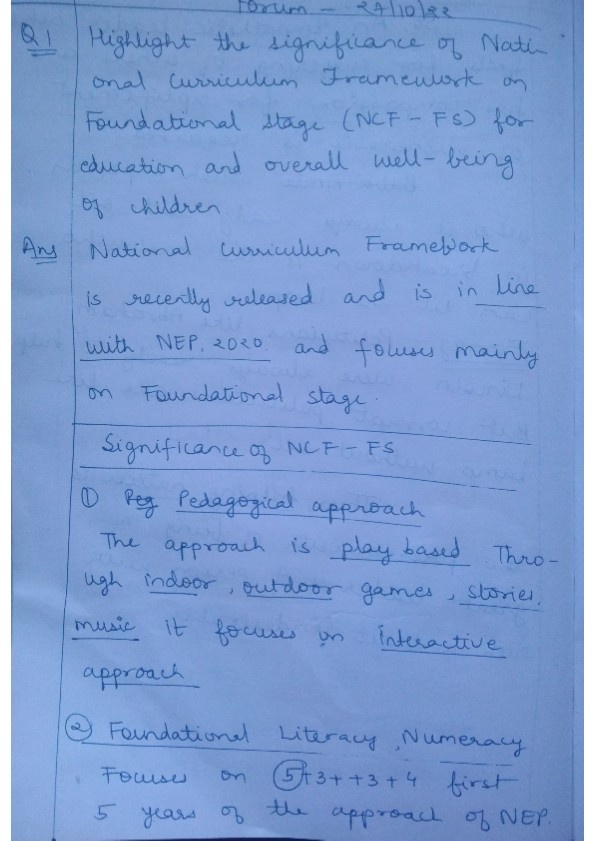 Forum - 27/10/22
Q1 Highlight the significance of Nati-
onal Curriculum Framework on
Foundational stage (NCF - FS) for
education and overall well-being
of children
Ans National Curriculum Framework
is recently released and is in line
with NEP, 2020 and focuses mainly
on Foundational stage.
Significance of NCF - FS
① Peg Pedagogical approach
The approach is play based Thro-
ugh indoor, outdoor games, stories,
music it focuses on interactive
approach
② Foundational Literacy, Numeracy
Focuses on 5+3++3+4 first
5 years of the approach of NEP.